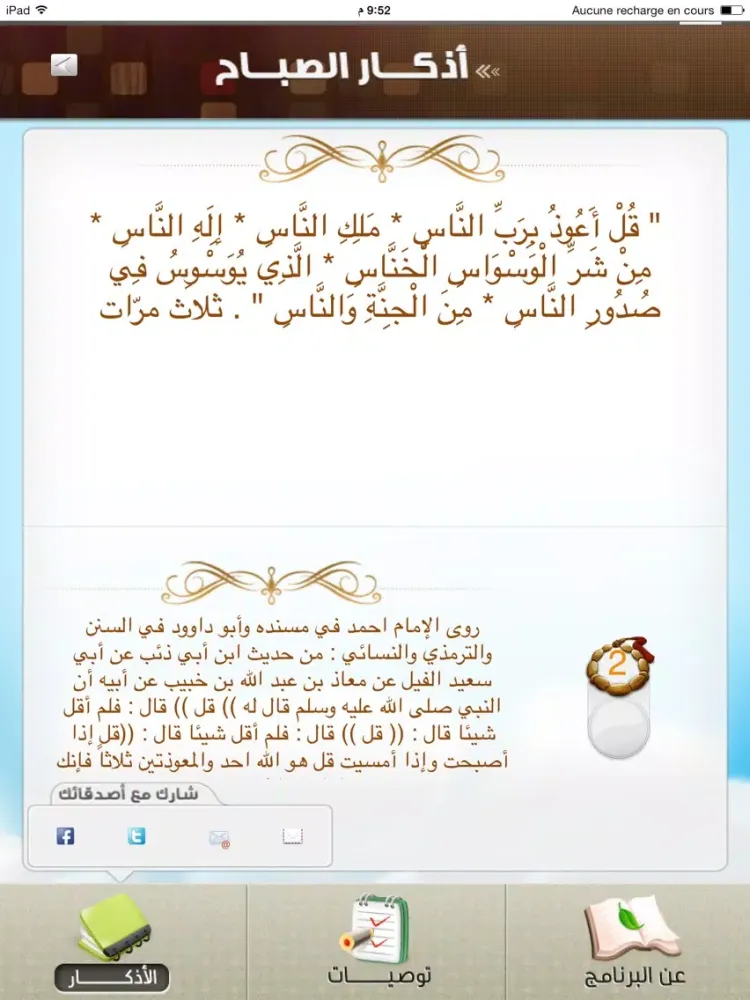 iPad
9:52 م
Aucune recharge en cours
أذكـــار الصبـــاح
" قُلْ أَعُوذُ بِرَبِّ النَّاسِ * مَلِكِ النَّاسِ * إِلَهِ النَّاسِ *
مِنْ شَرِّ الْوَسْوَاسِ الْخَنَّاسِ * الَّذِي يُوَسْوِسُ فِي
صُدُورِ النَّاسِ * مِنَ الْجِنَّةِ وَالنَّاسِ " . ثلاث مرّات
روى الإمام احمد في مسنده وأبو داوود في السنن
والترمذي والنسائي : من حديث ابن أبي ذئب عن أبي
سعيد الفيل عن معاذ بن عبد الله بن خبيب عن أبيه أن
النبي صلى الله عليه وسلم قال له )) قل )) قال : فلم أقل
شيئا قال : (( قل )) قال : فلم أقل شيئا قال : ((قل إذا
أصبحت وإذا أمسيت قل هو الله احد والمعوذتين ثلاثاً فإنك
2
شارك مع أصدقائك
عن البرنامج
توصيـــات
الأذكـــار